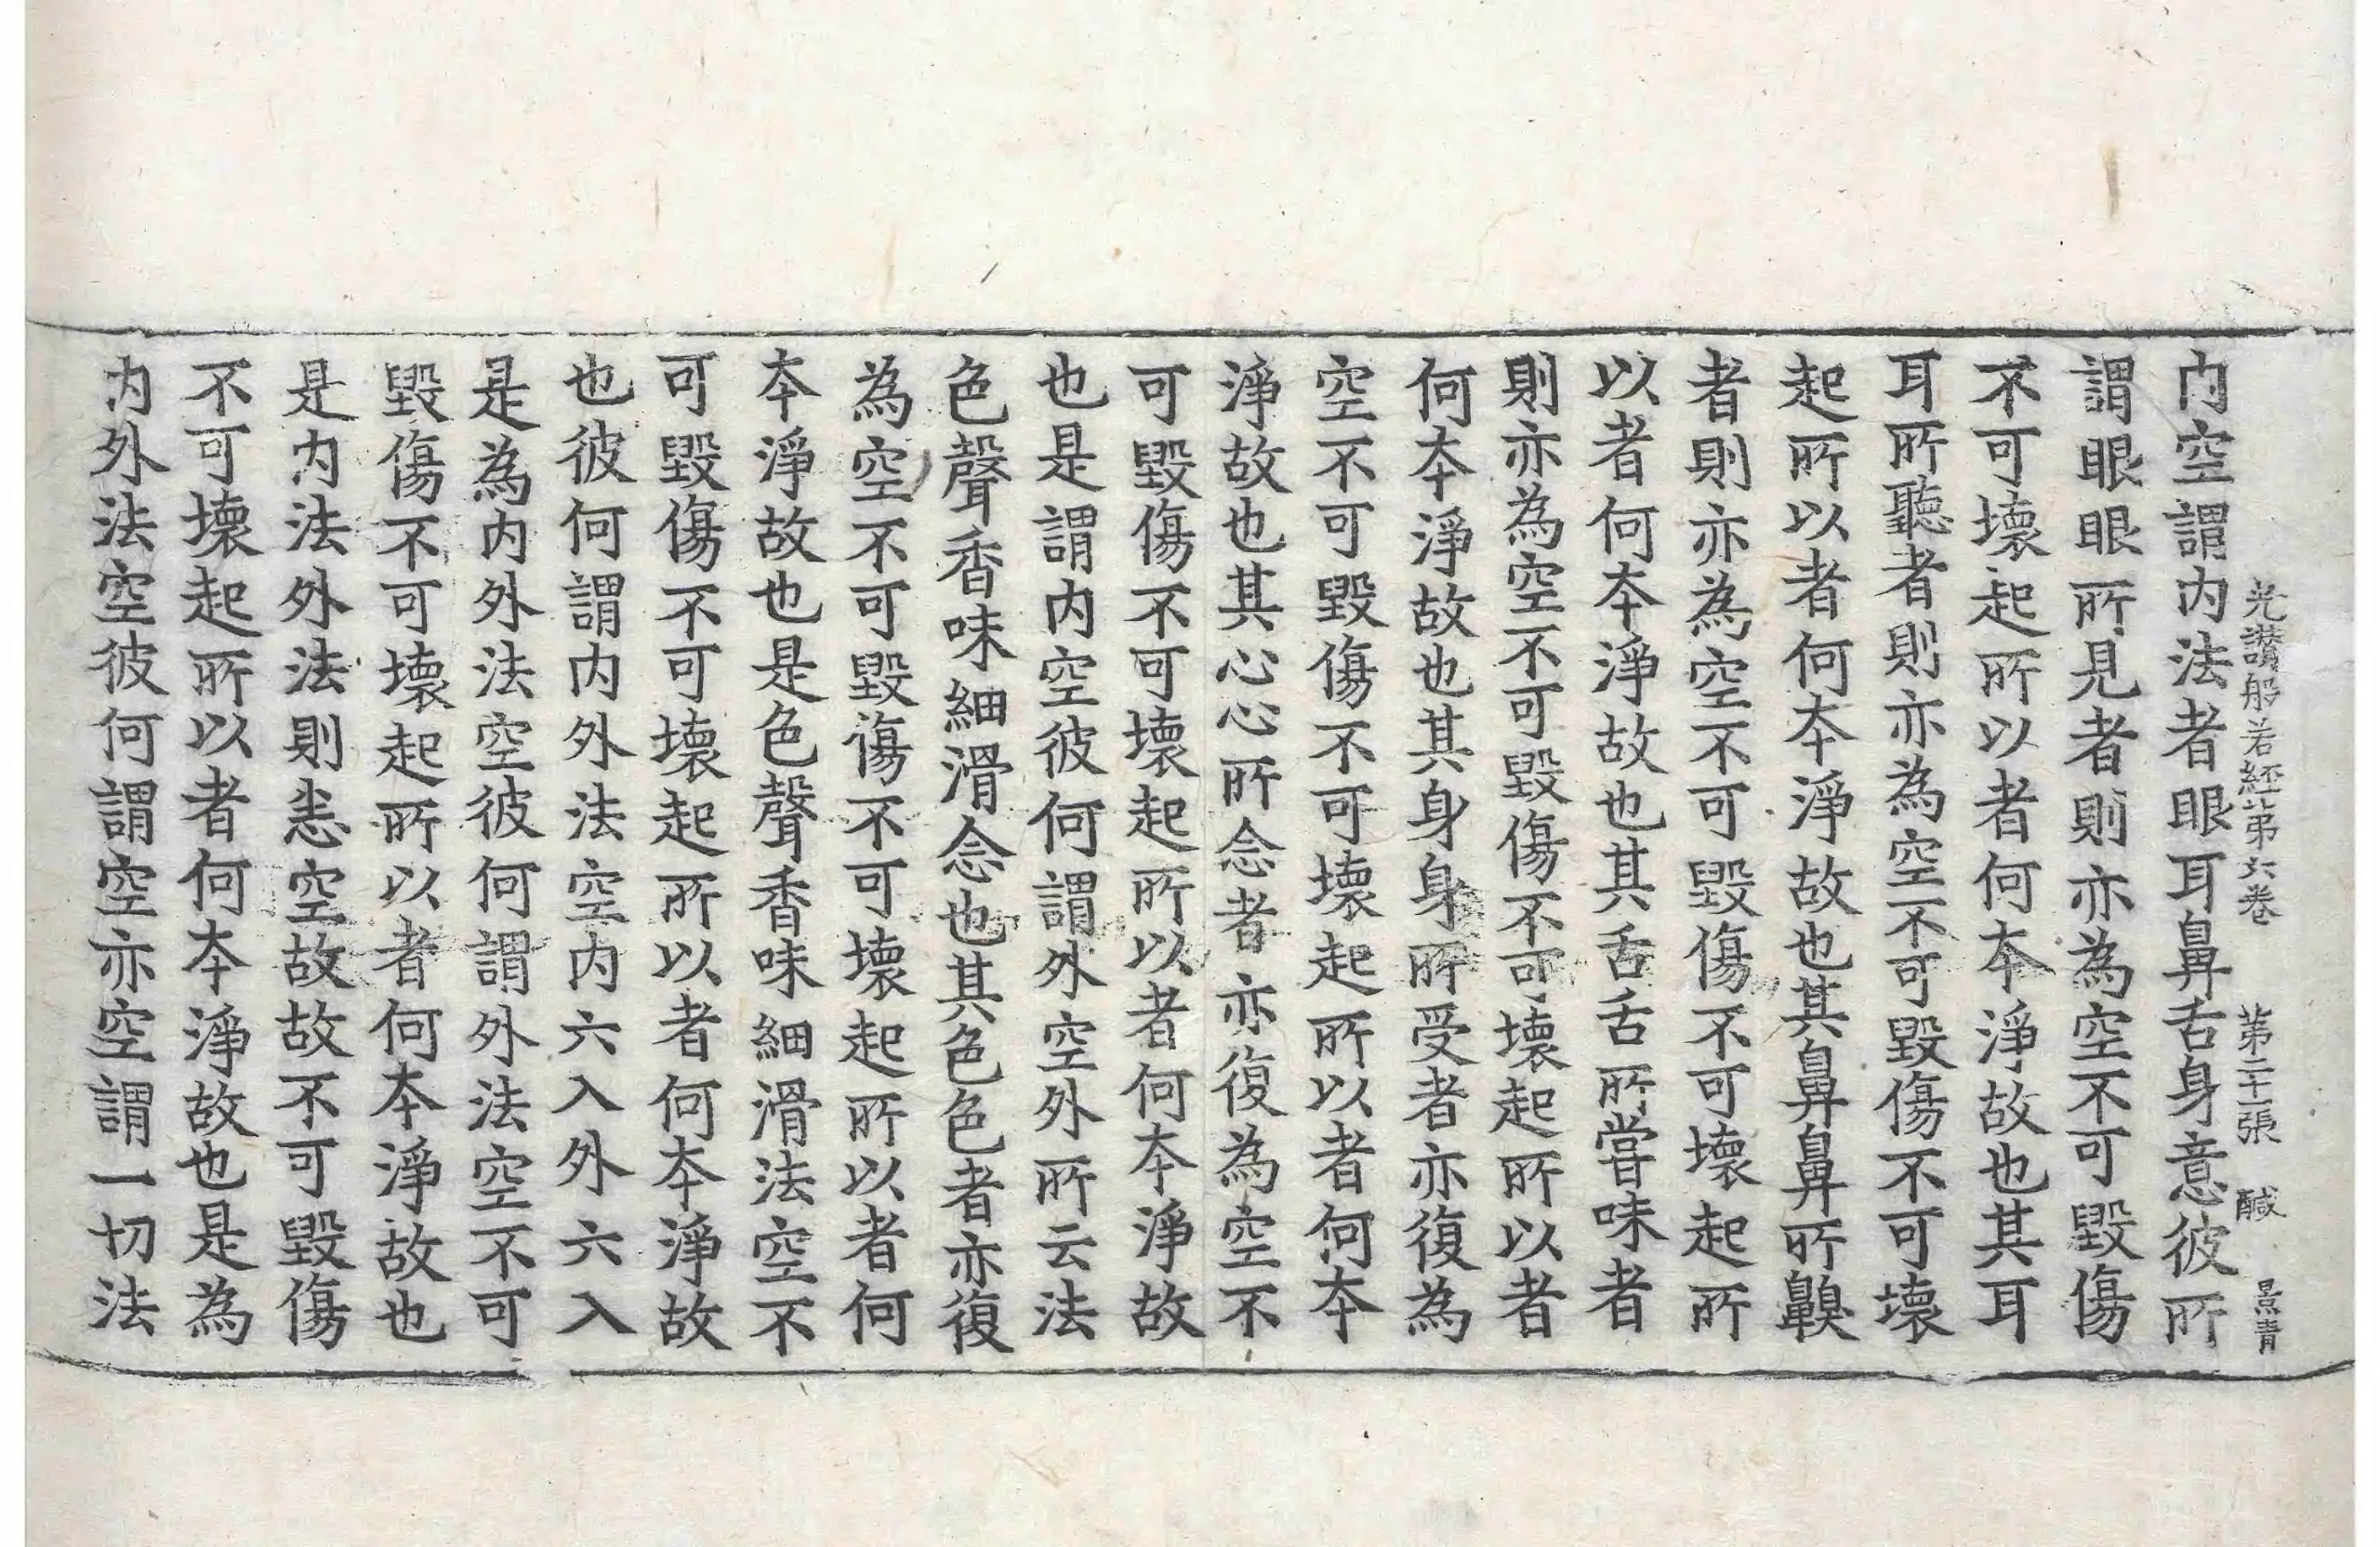 光讚般若經第六卷　第二十一張　醎　景青
内空謂内法者眼耳鼻舌身意彼所
謂眼眼所見者則亦為空不可毀傷
不可壞起所以者何本淨故也其耳
耳所聽者則亦為空不可毀傷不可壞
起所以者何本淨故也其鼻鼻所齅
者則亦為空不可毀傷不可壞起所
以者何本淨故也其舌舌所甞味者
則亦為空不可毀傷不可壞起所以者
何本淨故也其身身所受者亦復為
空不可毀傷不可壞起所以者何本
淨故也其心心所念者亦復為空不
可毀傷不可壞起所以者何本淨故
也是謂内空彼何謂外空外所云法
色聲香味細滑念也其色色者亦復
為空不可毀傷不可壞起所以者何
本淨故也是色聲香味細滑法空不
可毀傷不可壞起所以者何本淨故
也彼何謂内外法空内六入外六入
是為内外法空彼何謂外法空不可
毀傷不可壞起所以者何本淨故也
是内法外法則恚空故故不可毀傷
不可壞起所以者何本淨故也是為
内外法空彼何謂空亦空謂一切法